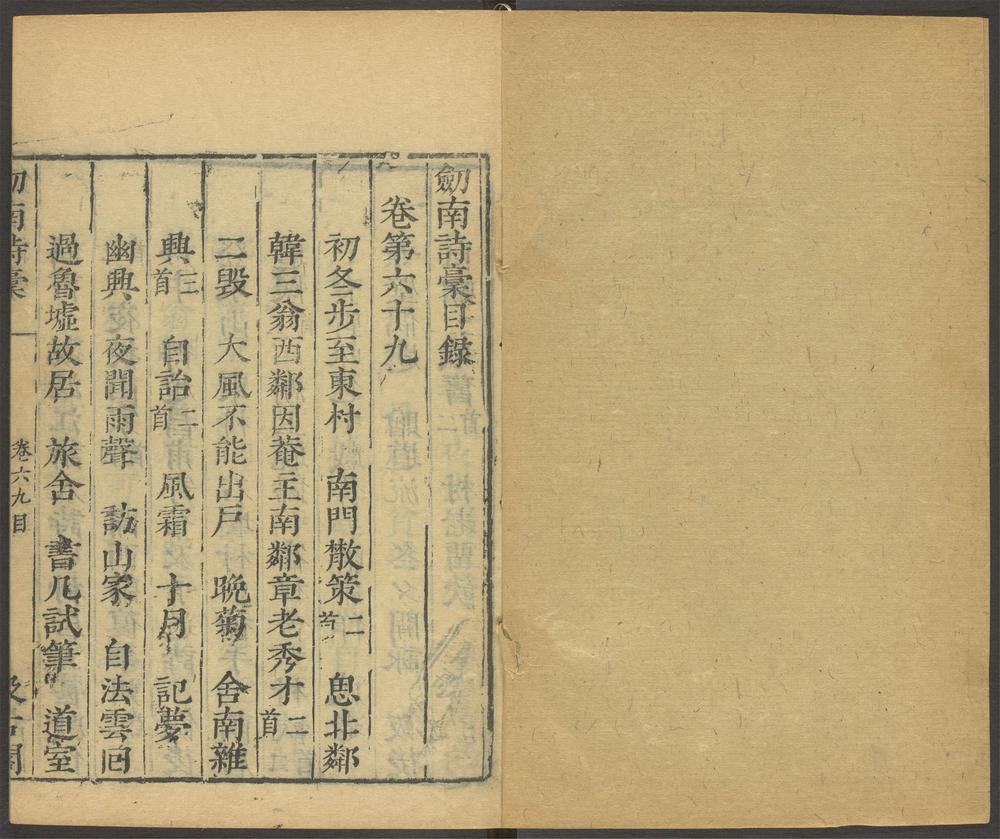 劒南詩稾目錄
卷第六十九
初冬步至東村　南門散策二首　思北鄰
韓三翁西鄰因菴主南鄰章老秀才二首
二毁　大風不能出戸　晚菊　舍南雜
興三首　自詒二首　風霜　十月　記夢
幽興　夜聞雨聲　訪山家　自法雲囘
過魯墟故居　旅舍　書几試筆　道室
劒南詩稾　卷六九目　汲古閣